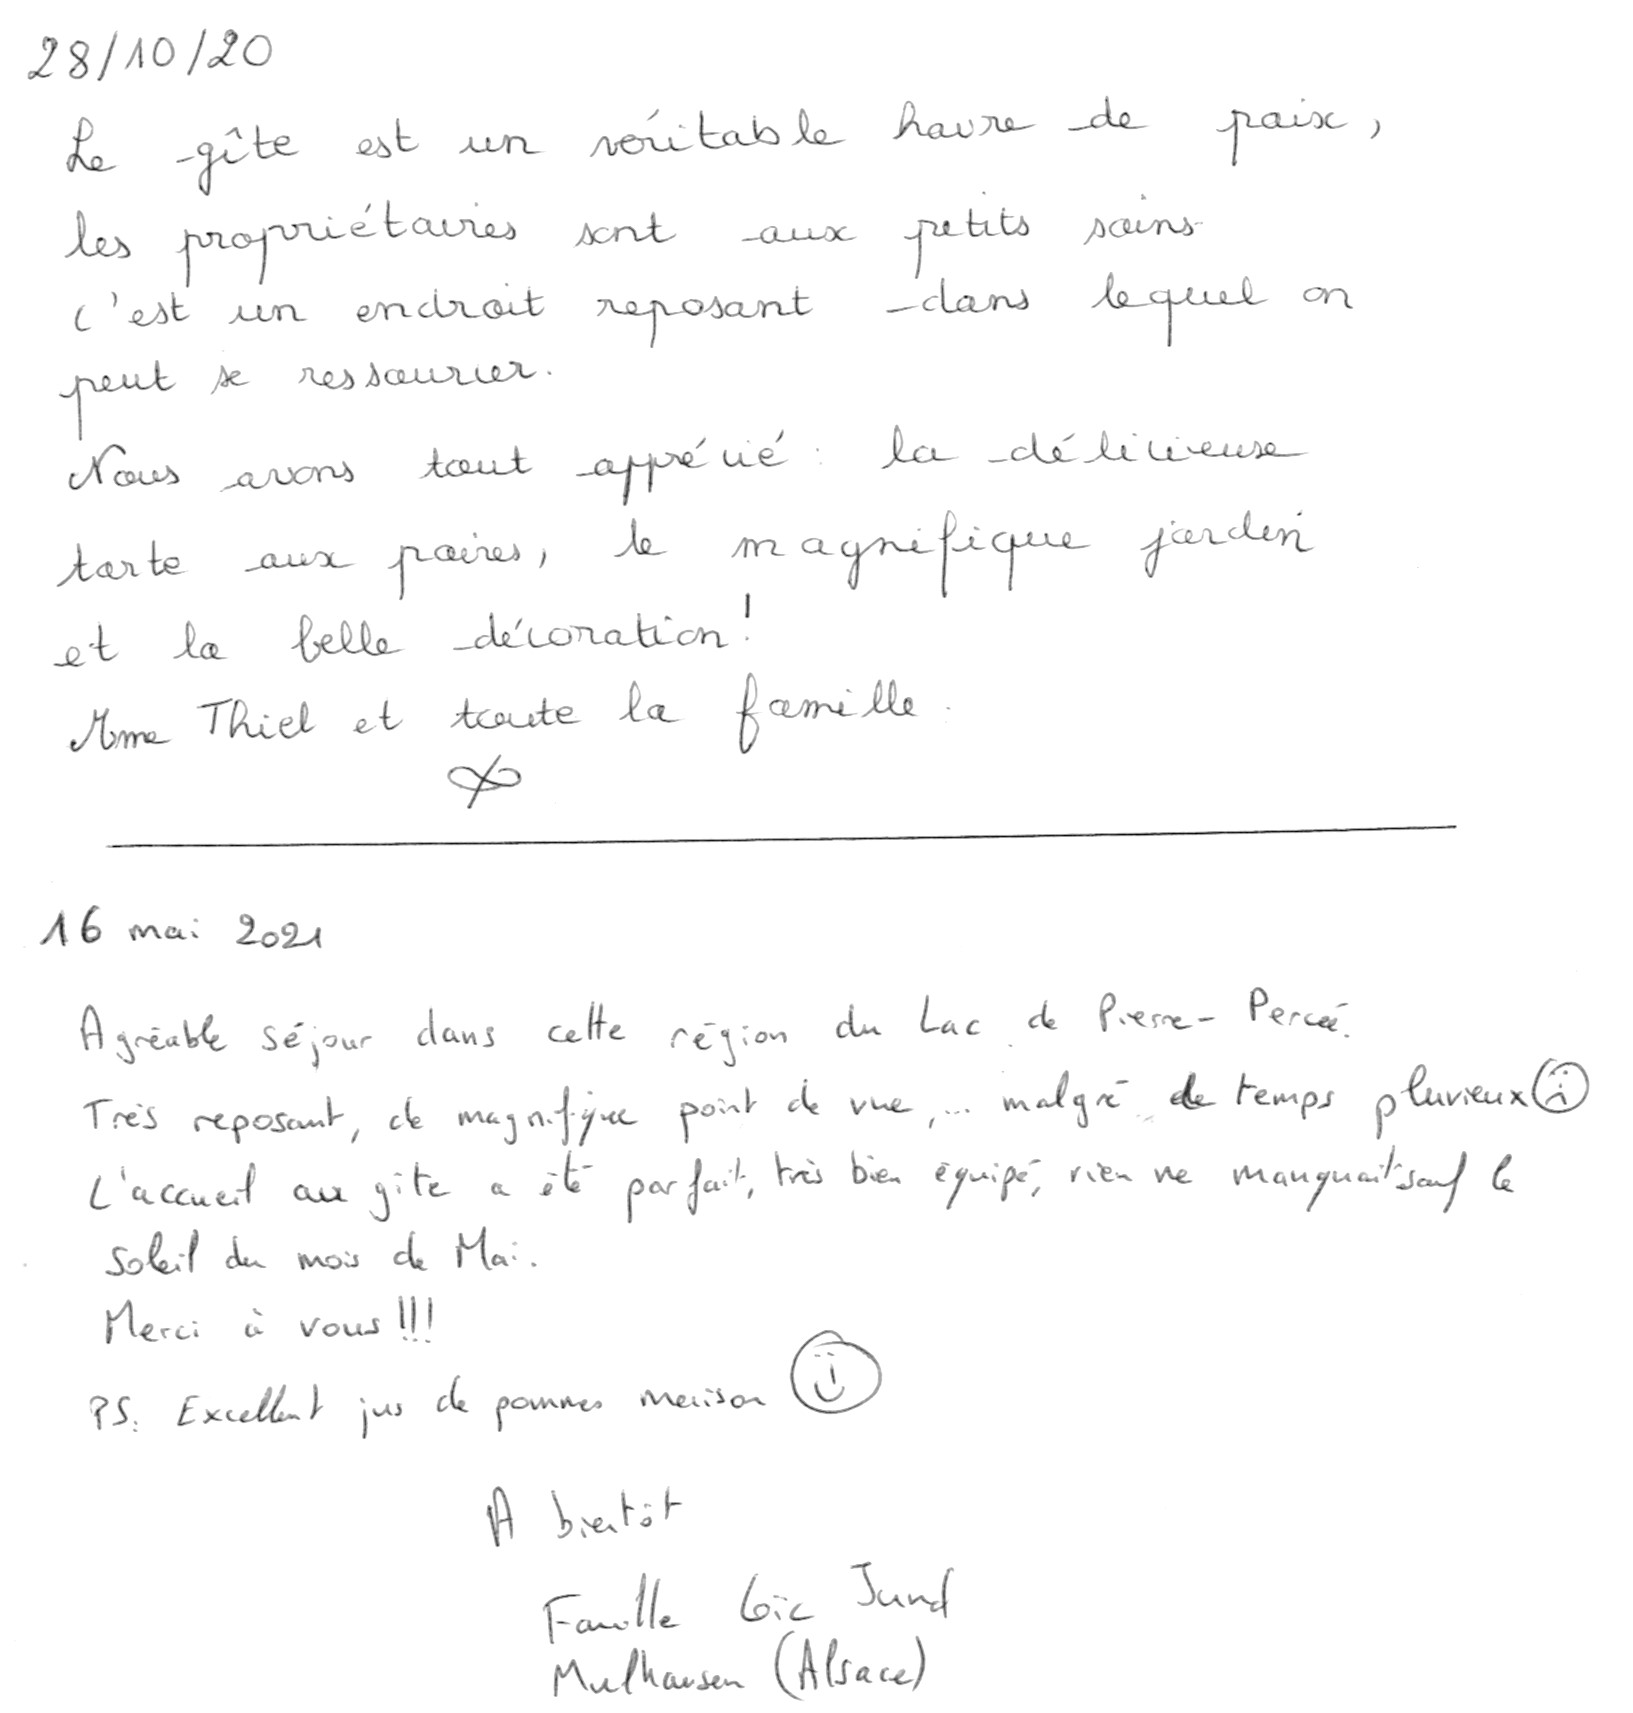 28/10/20
Le gîte est un véritable havre de paix,
les propriétaires sont aux petits soins
c'est un endroit reposant dans lequel on
peut se ressourcer.
Nous avons tout apprécié : la délicieuse
tarte aux poires, le magnifique jardin
et la belle décoration !
Mme Thiel et toute la famille.
16 mai 2021
Agréable séjour dans cette région du Lac de Pierre-Percée.
Très reposant, de magnifique point de vue, ... malgré le temps pluvieux
L'accueil au gîte a été parfait, très bien équipé, rien ne manquait sauf le
soleil du mois de Mai.
Merci à vous !!!
PS. Excellent jus de pommes maison
A bientôt
Famille Loïc Jund
Mulhausen (Alsace)